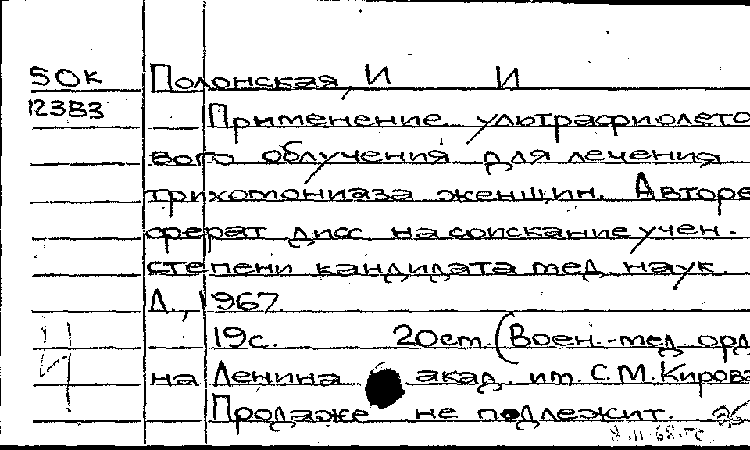 50к Полонская, И И
12383 Применение ультрафиолето
вого облучения для лечения
трихомониаза женщин. Авторе
ферат дисс. на соискание учен.
степени кандидата мед. наук.
Л., 1967.
19с. 20см. (Воен.-мед. орде
на Ленина акад. им. С.М. Кирова
Продаже не подлежит.